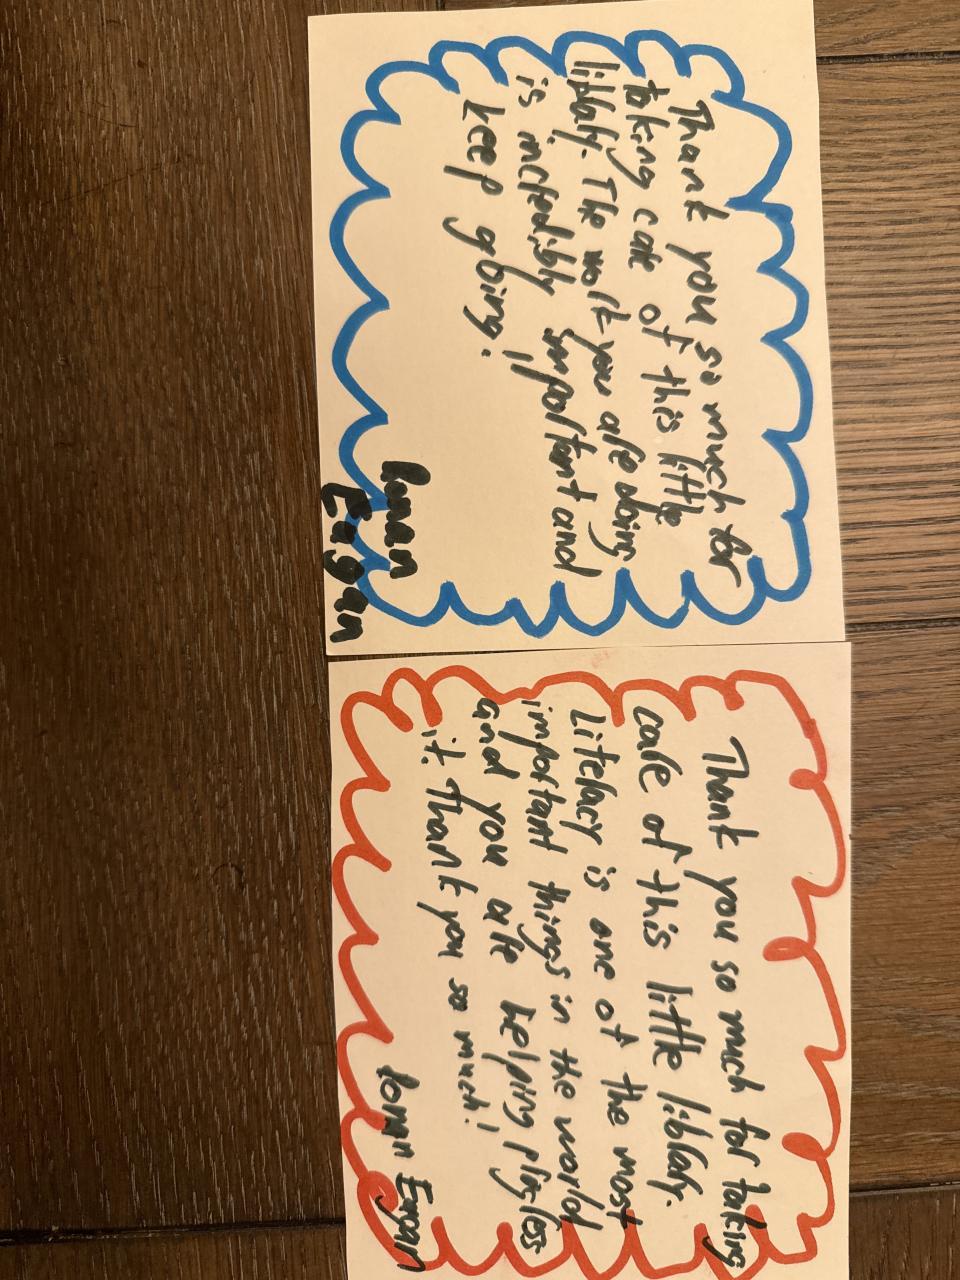 Thank you so much for
taking care of this little
library. The work you are doing
is incredibly important and
keep going!
Ronan
Eagan
Thank you so much for taking
care of this little library.
Literacy is one of the most
important things in the world
and you are helping progress
it. Thank you so much!
Ronan Eagan